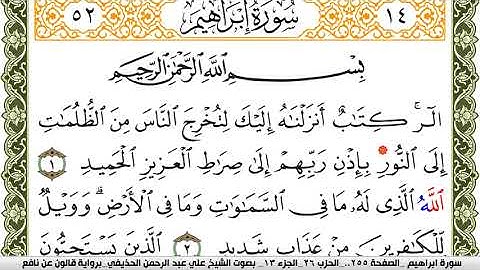 ١٤ سُورَةُ إِبْرَاهِيم ٥٢
بِسْمِ اللَّهِ الرَّحْمَٰنِ الرَّحِيمِ
الٓرۚ كِتَٰبٌ أَنزَلْنَٰهُ إِلَيْكَ لِتُخْرِجَ النَّاسَ مِنَ الظُّلُمَٰتِ
إِلَى النُّورِ بِإِذْنِ رَبِّهِمْ إِلَىٰ صِرَٰطِ الْعَزِيزِ الْحَمِيدِ ١
اللَّهُ الَّذِى لَهُۥ مَا فِى السَّمَٰوَٰتِ وَمَا فِى الْأَرْضِۗ وَوَيْلٌ
لِّلْكَٰفِرِينَ مِنْ عَذَابٍ شَدِيدٍ ٢ الَّذِينَ يَسْتَحِبُّونَ
سورة ابراهيم _الصفحة ٢٥٥.. الحزب ٢٦_الجزء ١٣ _ بصوت الشيخ علي عبد الرحمن الحذيفي_برواية قالون عن نافع